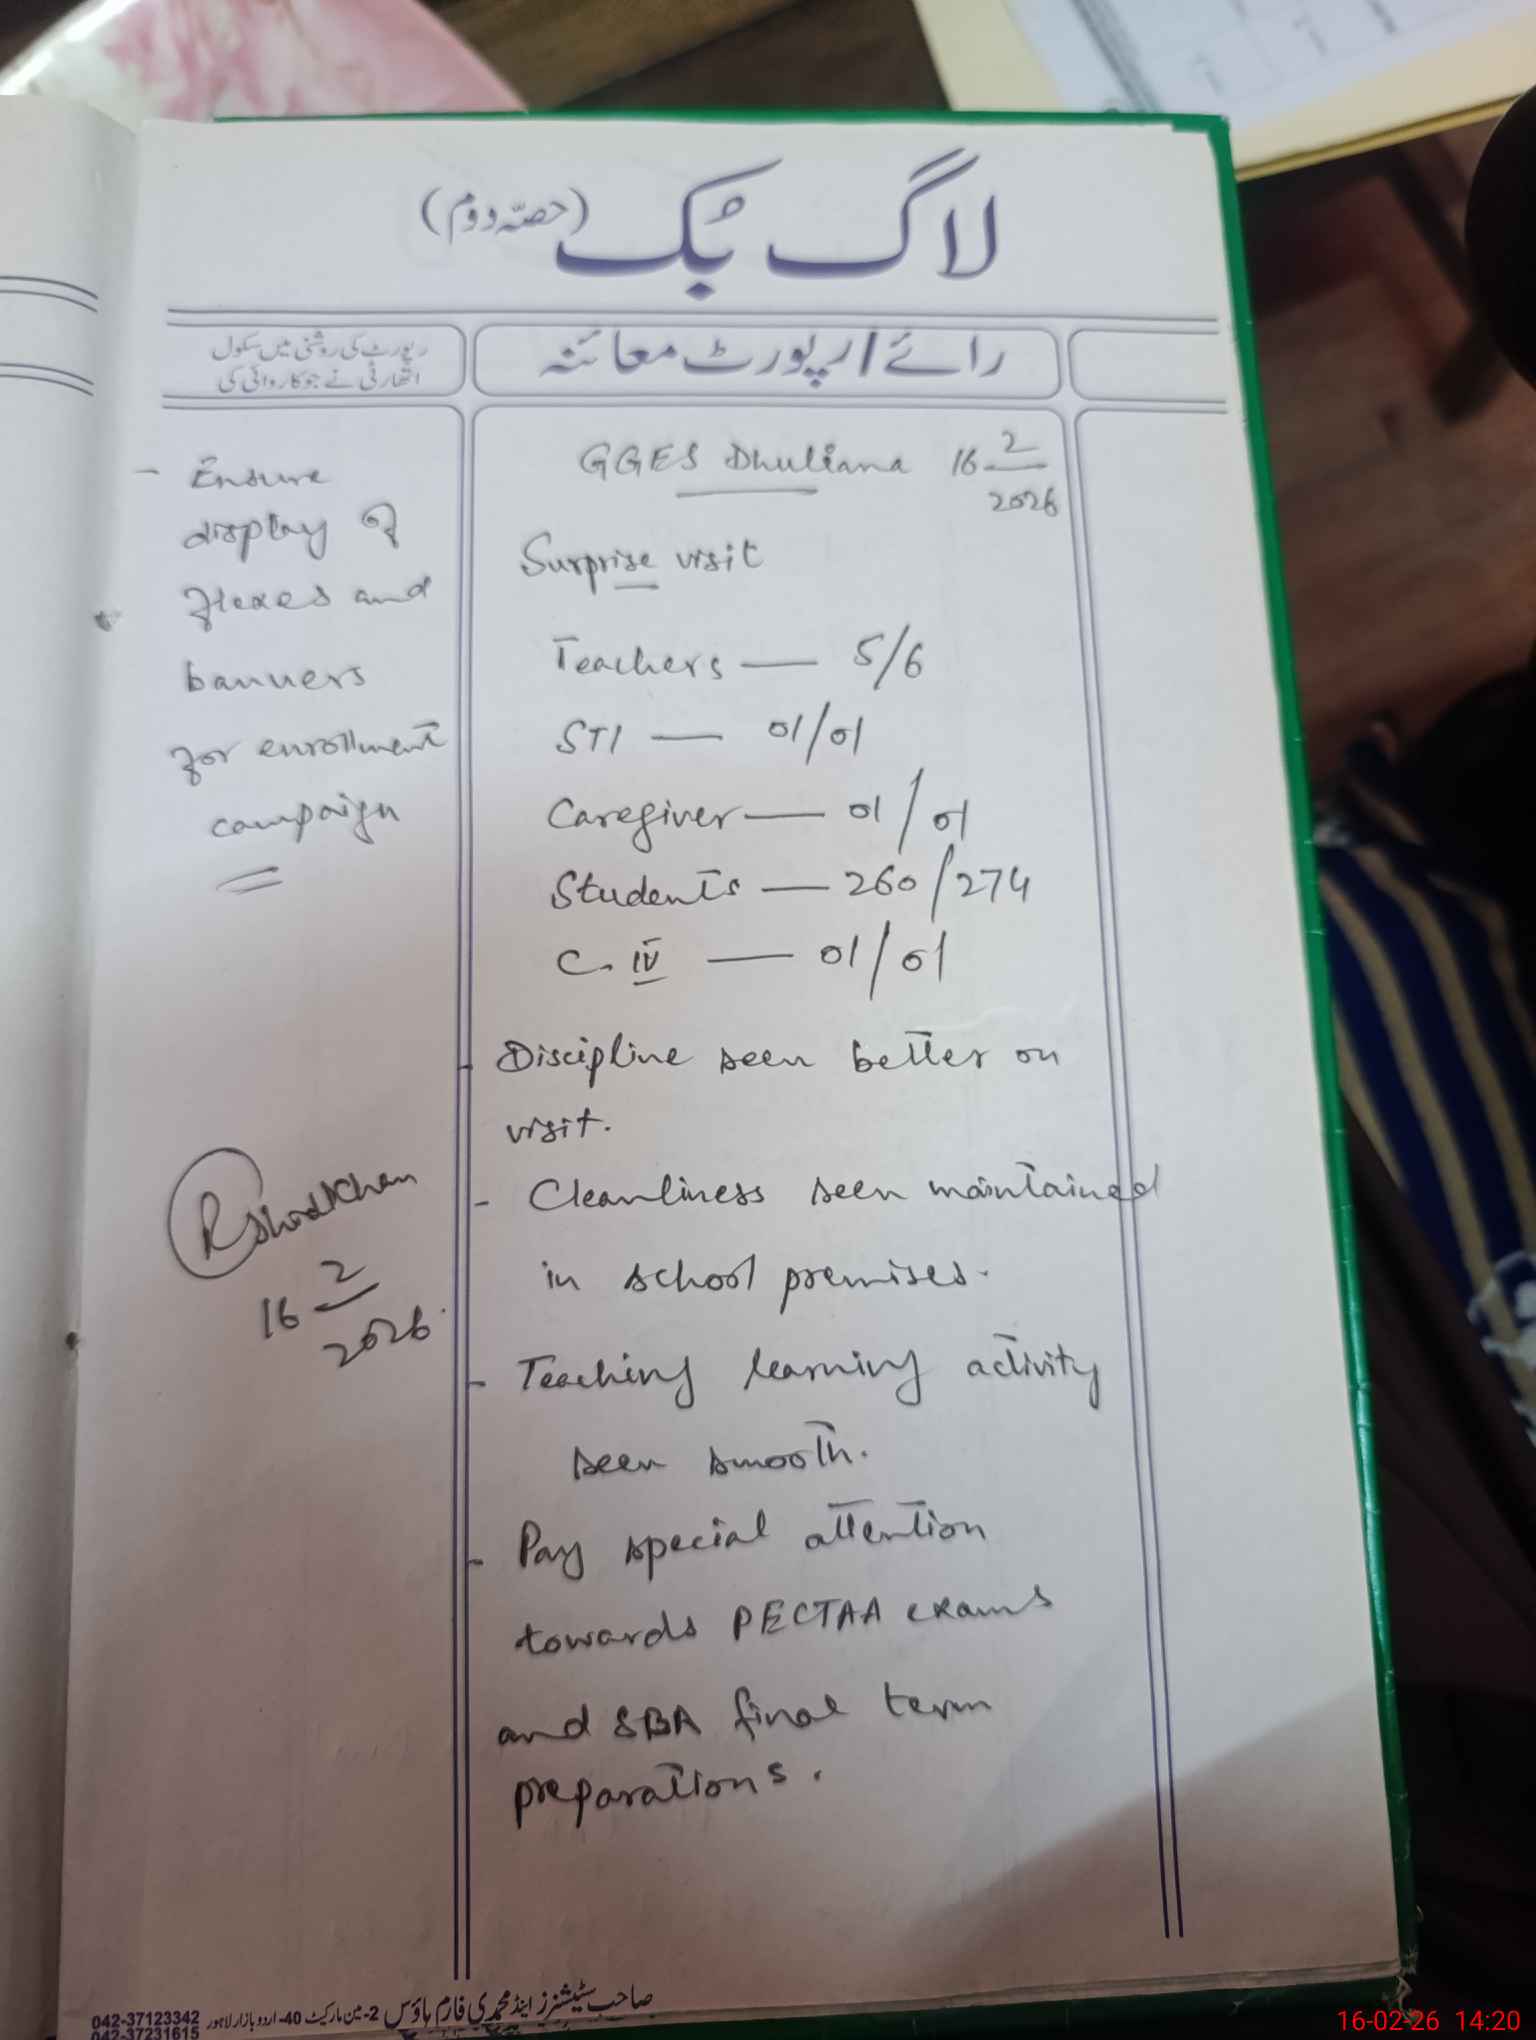 لاگ بُک (حصّہ دوم)
رائے / رپورٹ معائنہ
رپورٹ کی روشنی میں سکول
اتھارٹی نے جو کاروائی کی
GGES Dhuliana 16 2/2026
Surprise visit
Teachers — 5/6
STI — 01/01
Caregiver — 01/01
Students — 260/274
C. IV — 01/01
- Discipline seen better on
visit.
- Cleanliness seen maintained
in school premises.
- Teaching learning activity
seen smooth.
- Pay special attention
towards PECTAA exams
and SBA final term
preparations.
- Ensure
display of
flexes and
banners
for enrollment
campaign
RashidKhan
16 2/2026
صاحب سٹیشنرز اینڈ محمدی فارم ہاؤس 2-مین مارکیٹ 40-اردو بازار لاہور 042-37123342
042-37231615
16-02-26 14:20